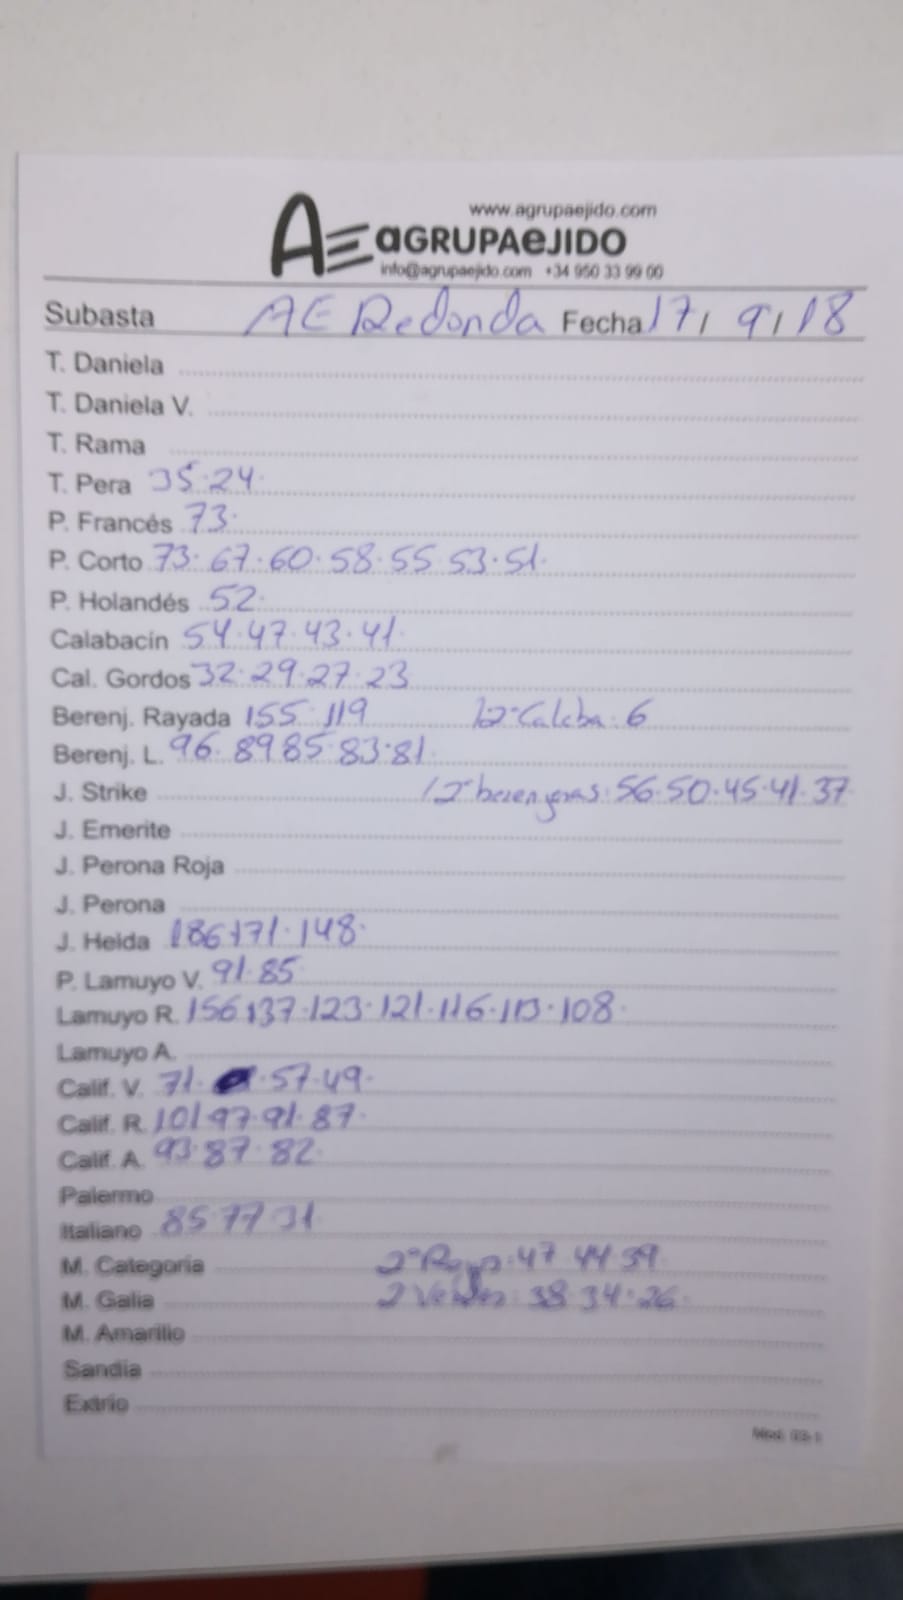 www.agrupaejido.com
AE aGRUPAeJIDO
info@agrupaejido.com +34 950 33 99 00
Subasta AE Redonda Fecha 17/ 9/ 18
T. Daniela
T. Daniela V.
T. Rama
T. Pera 35·24·
P. Francés 73·
P. Corto 73·67·60·58·55 53·51·
P. Holandés 52·
Calabacín 54·47·43·41·
Cal. Gordos 32·29·27·23
Berenj. Rayada 155·119 12ª Calaba·6
Berenj. L. 96·89 85·83·81·
J. Strike 12ª berenjenas·56·50·45·41·37
J. Emerite
J. Perona Roja
J. Perona
J. Helda 186 171·148·
P. Lamuyo V. 91·85
Lamuyo R. 156 137·123·121·116·113·108·
Lamuyo A.
Calif. V. 71·57·49·
Calif. R. 101 97·91·87·
Calif. A. 93·87·82·
Palermo
Italiano 85·77·31·
M. Categoria 2ª Rojos·47 44 39·
M. Galia 2 Verdes: 38 34·26·
M. Amarillo
Sandía
Extrio
Mod. 03-1